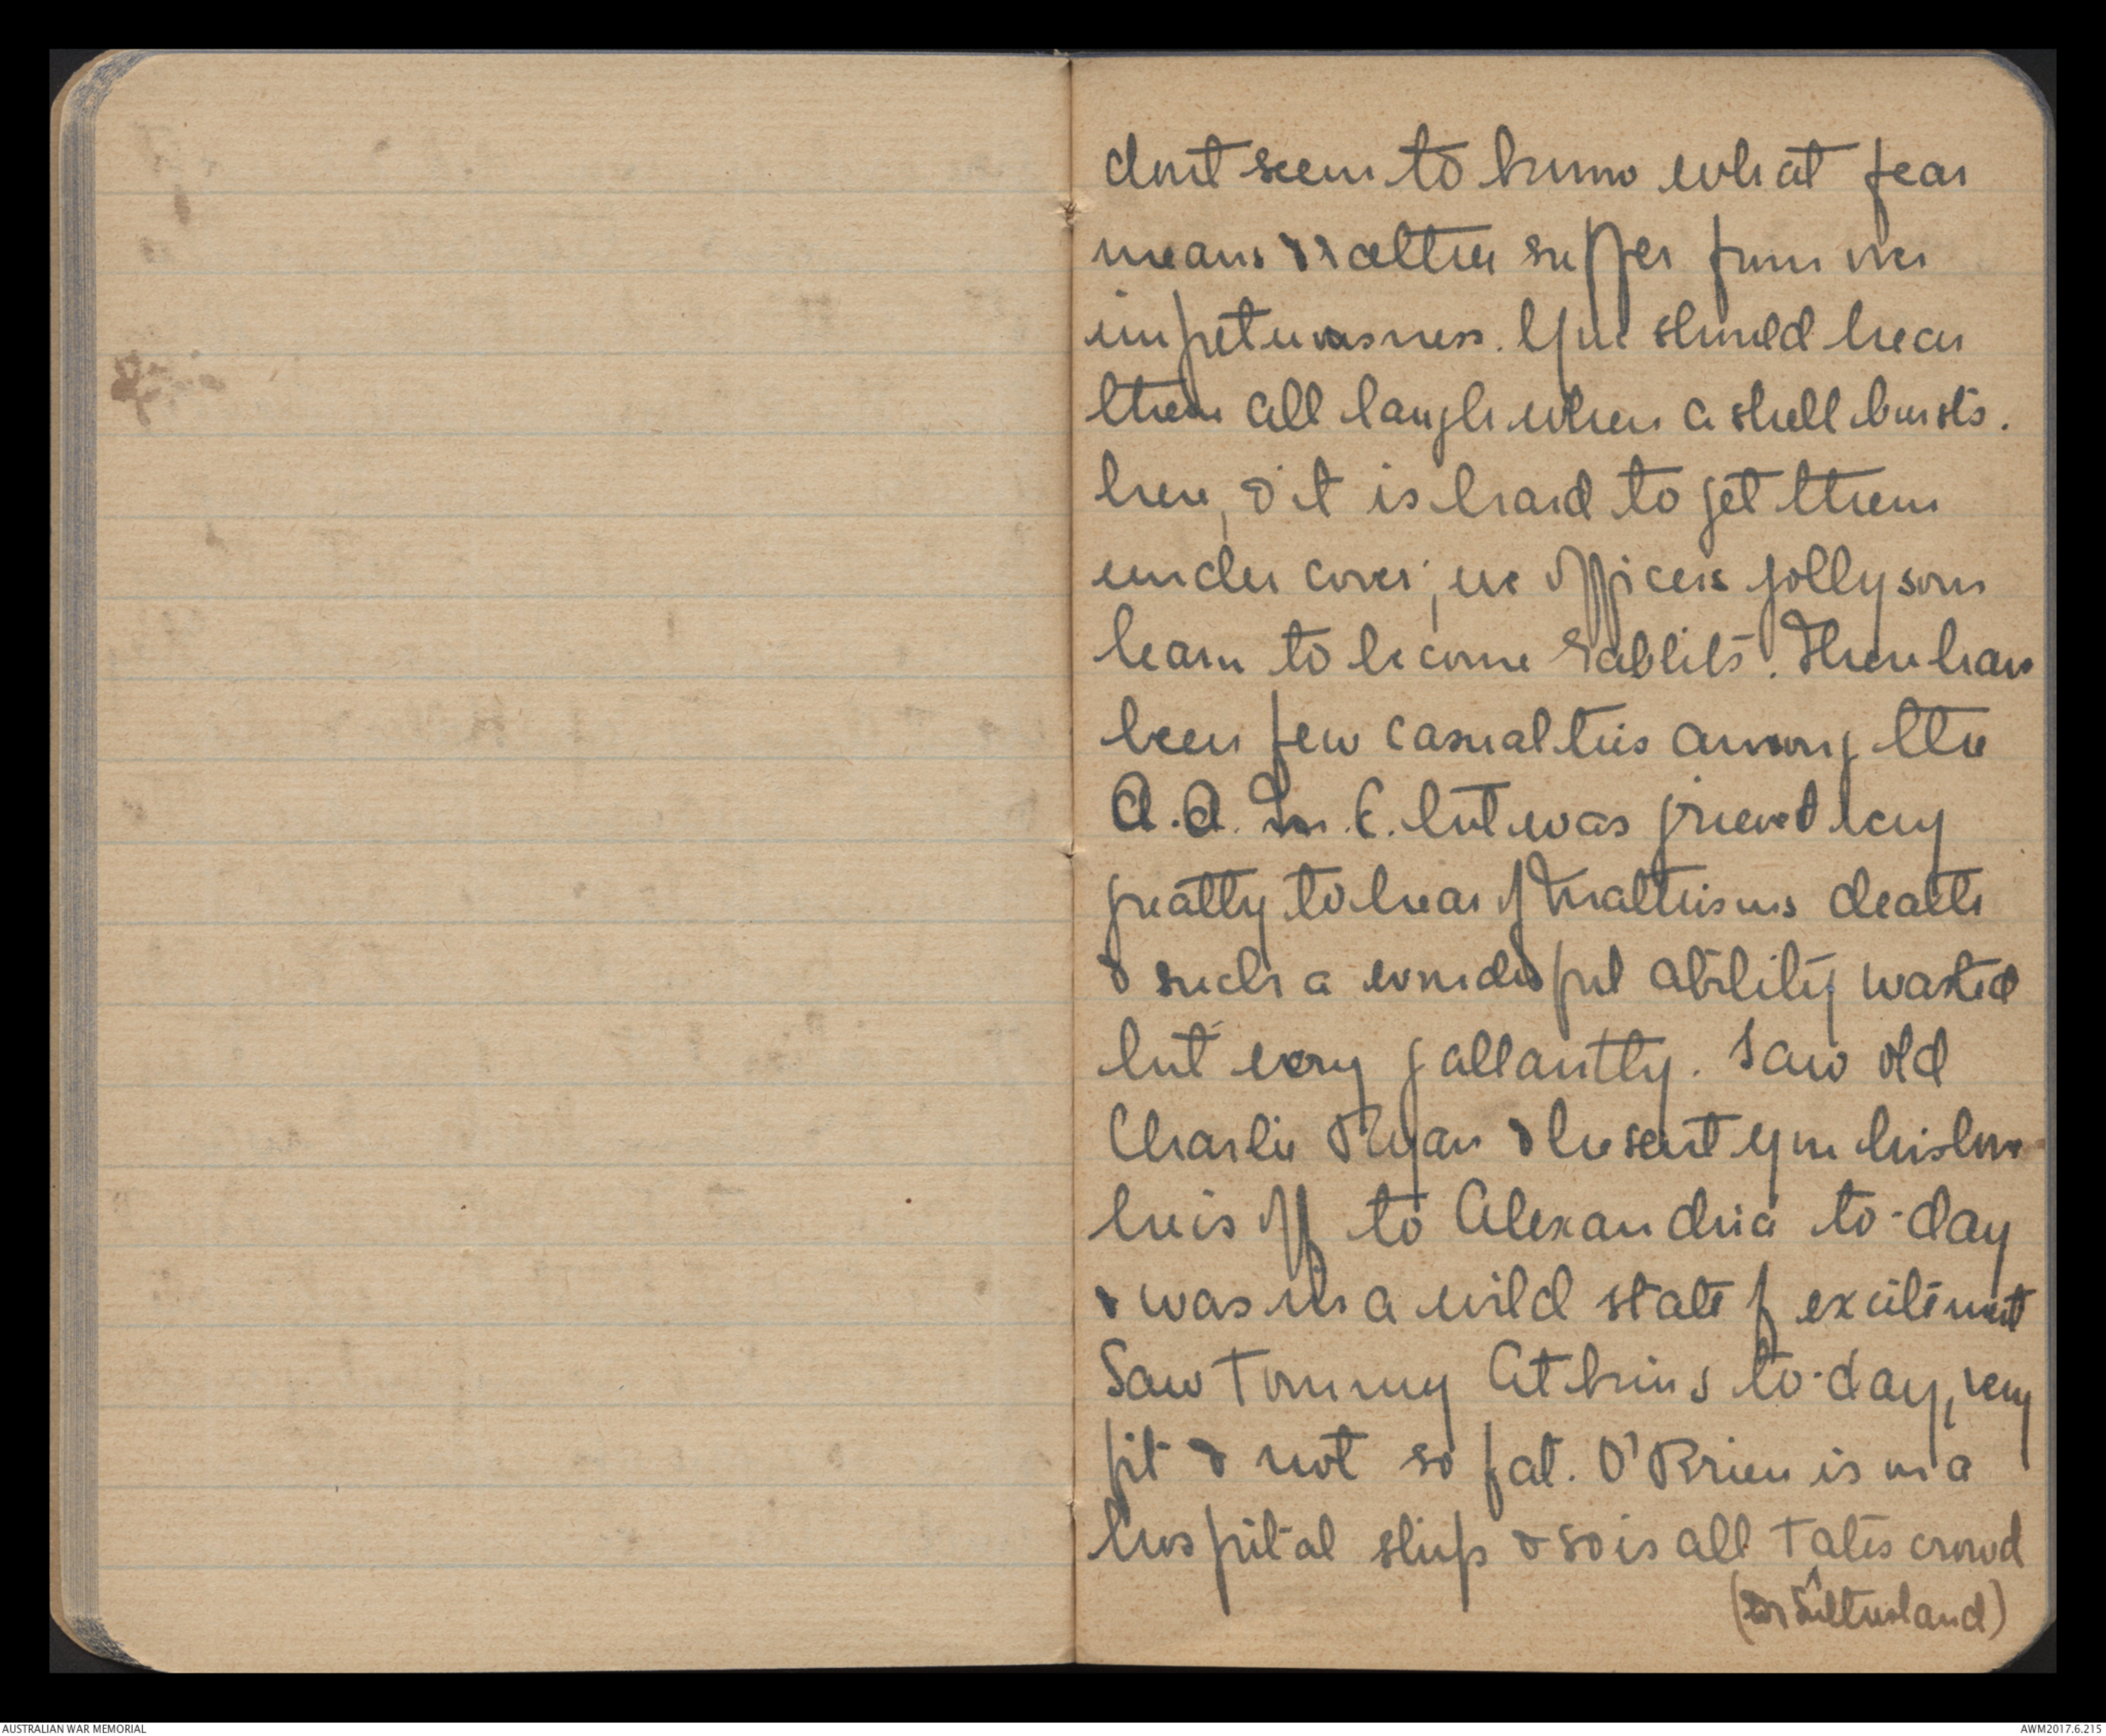 dont seem to know what fear
means & rather suffer from over
impetuousness. You should hear
them all laugh when a shell bursts.
here, & it is hard to get them
under cover; we officers jolly soon
learn to become rabbits. There have
been few casualties among the
A.A.M.C. but was grieved very
greatly to hear of Mathisons death
& such a wonderful ability wasted
but very gallantly. Saw old
Charlie Ryan & he sent you his love
he is off to Alexandria to-day
& was in a wild state of excitement
Saw Tommy Atkins to-day, very
fit & not so fat. O'Brien is in a
hospital ship & so is all Tates crowd
(Sutherland)
AUSTRALIAN WAR MEMORIAL
AWM2017.6.215